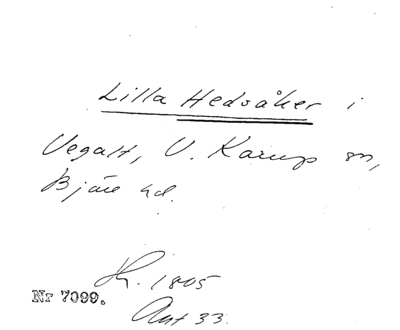 Lilla Hedsåker i
Vegalt, V. Karup sn,
Bjäre hd.
1805
Nr 7099.
Akt 33.